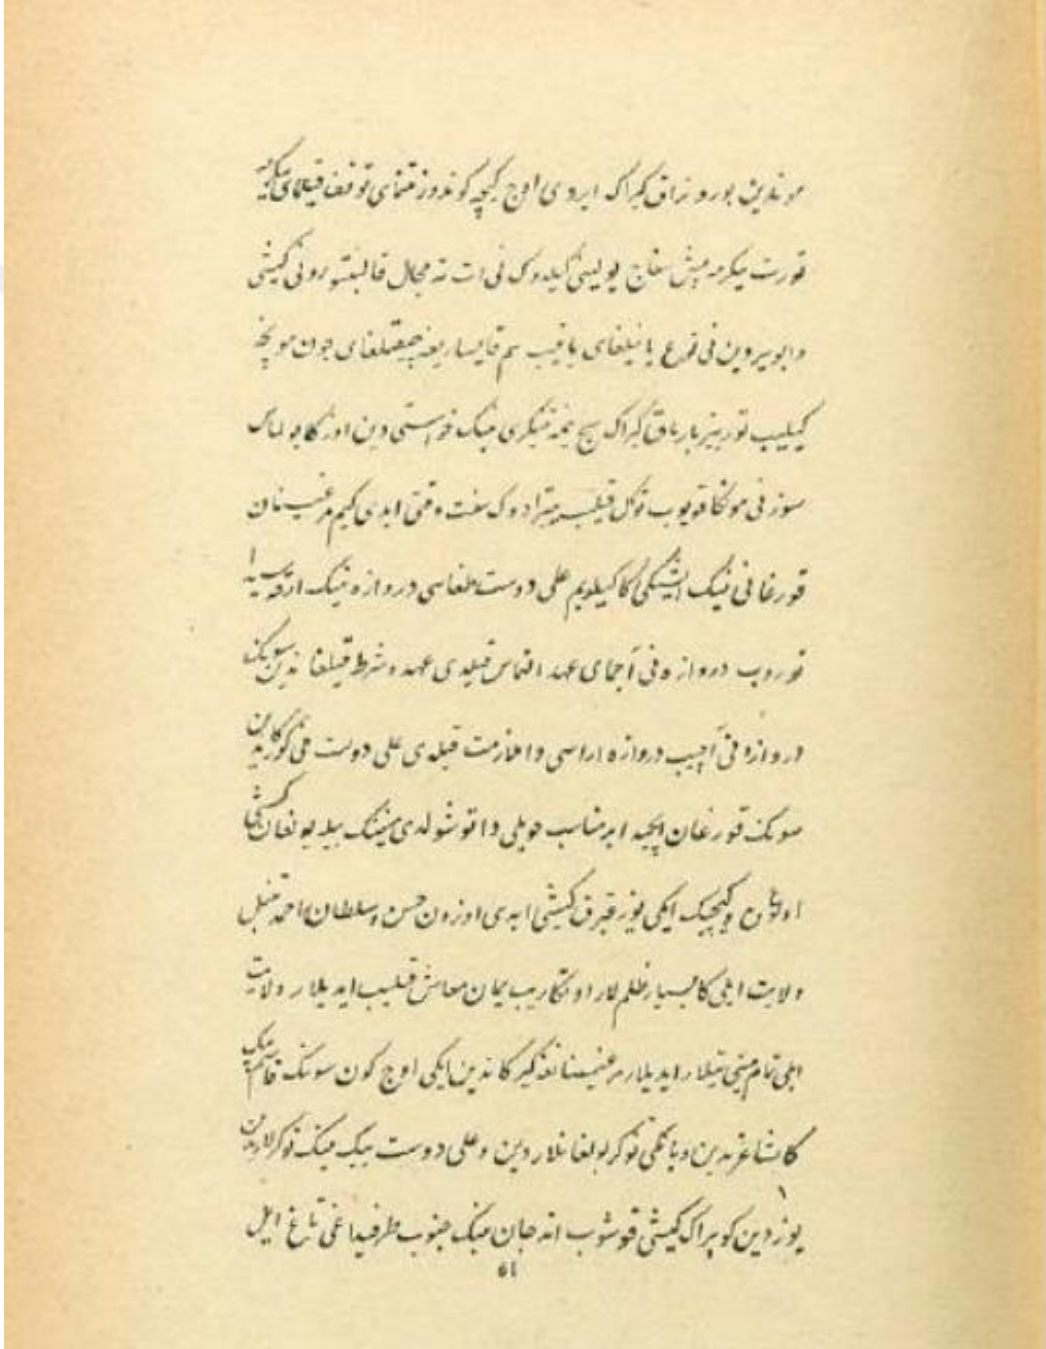 موندین بورونراق کیراک ایردی اوچ کیچه کوندوز نقمای توقف قیلمای یکرمه
تورت یکرمه بیش یغاج یول کیلدوک نی ات ته مجال قالیبتورونی کیشی
دا بو یردین نی نوع یانیلغای یانیب هم قایساریغه چیقیلغای چون مونچه
کیلیب توربیز بارماق کیراک هیچ نیمه تینکری نینک خواستی دین اوزکا بولماس
سوزنی مونکا قویوب توکل قیلیب یتّرادوک سنت وقتی ایدی کیم مرغینان
قورغانی نینک ایشیکی کا کیلدیم علی دوست طغایی دروازه نینک ارقه سیدا
توروب دروازه نی آچمای عهد التماس قیلدی عهد و شرط قیلغاندین سونک
دروازه نی آچیب دروازه اراسی دا ملازمت قیلدی علی دوست نی کورکاندین
سونک قورغان ایچیدا بر مناسب حویلی دا توشولدی مینینک بیله بولغان کیشی
اولوغ و کیچیک ایکی یوز قیرق کیشی ایدی اوزون حسن و سلطان احمد تنبل
ولایت ایلی کا بسیار ظلم لار اوتکاریب یمان معاش قیلیب ایدیلار ولایت
ایلی تمام مینی تیلار ایدیلار مرغینانغه کیرکاندین ایکی اوچ کون سونک قاسم بیک
کا پشاغردین و یانکی نوکر بولغانلاردین و علی دوست بیک نینک نوکرلاریدین
یوزدین کوپراک کیشی قوشوب اندجان نینک جنوب طرفیداغی تاغ ایل
٥١